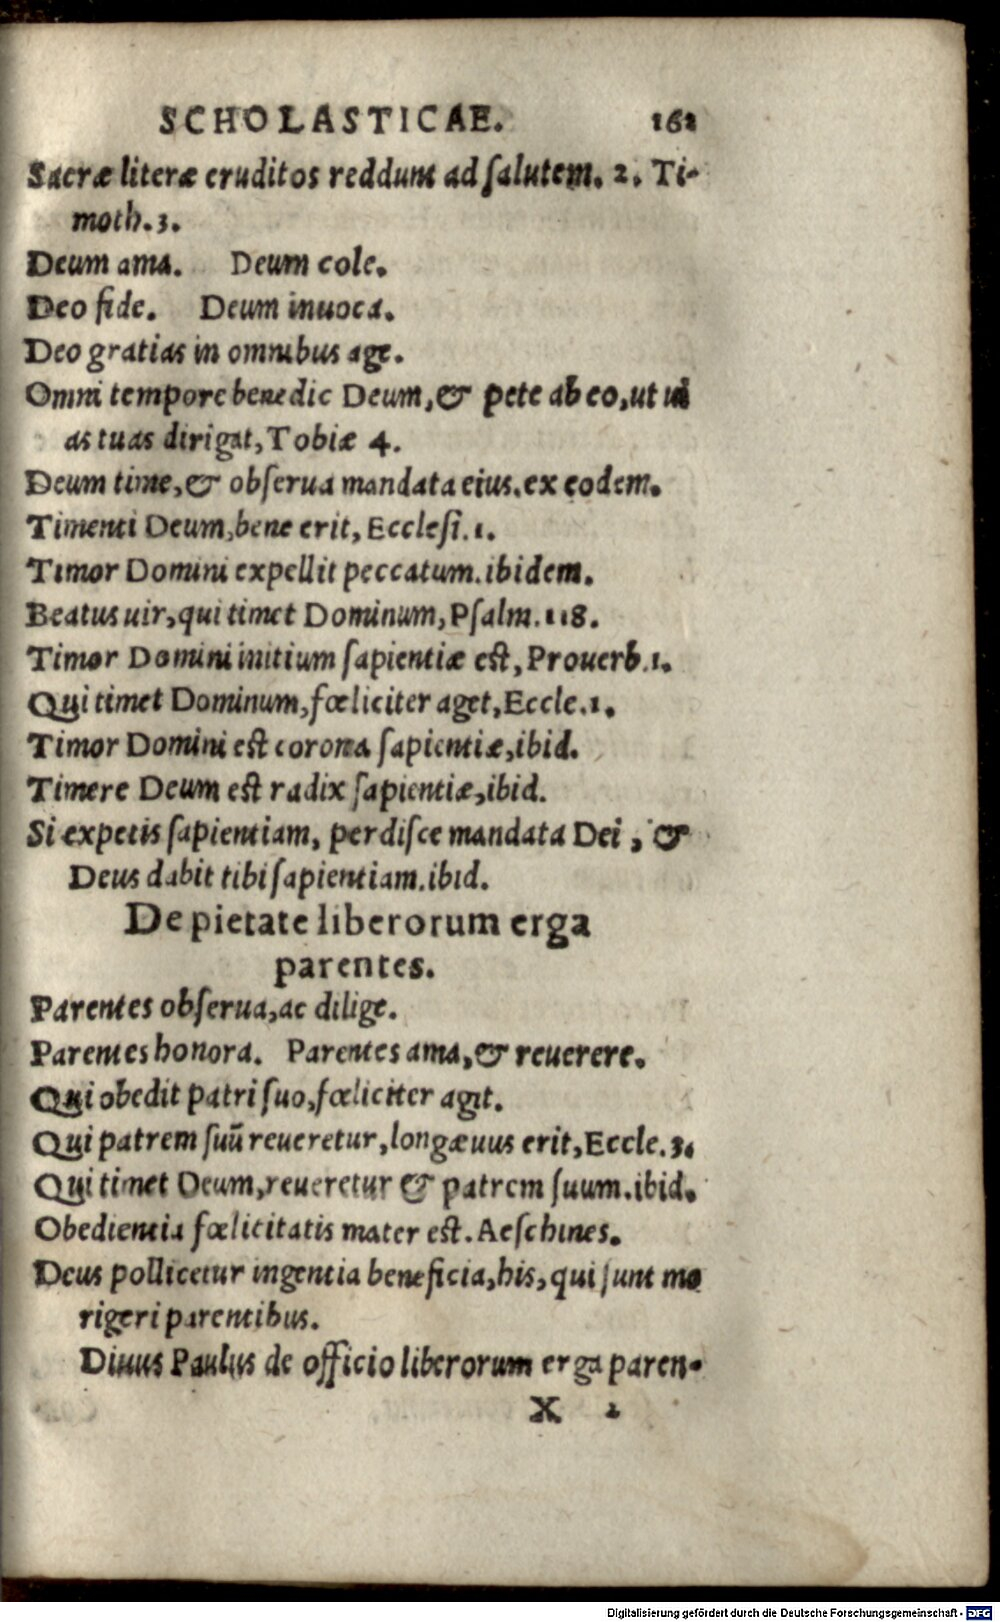 SCHOLASTICAE. 162
Sacræ literæ eruditos reddunt ad ſalutem. 2. Ti-
moth. 3.
Deum ama. Deum cole.
Deo fide. Deum inuoca.
Deo gratias in omnibus age.
Omni tempore benedic Deum, & pete ab eo, ut ui
as tuas dirigat, Tobiæ 4.
Deum time, & obſerua mandata eius. ex eodem.
Timenti Deum, bene erit, Eccleſi. 1.
Timor Domini expellit peccatum. ibidem.
Beatus uir, qui timet Dominum, Pſalm. 118.
Timor Domini initium ſapientiæ eſt, Prouerb. 1.
Qui timet Dominum, fœliciter aget, Eccle. 1.
Timor Domini eſt corona ſapientiæ, ibid.
Timere Deum eſt radix ſapientiæ, ibid.
Si expetis ſapientiam, perdiſce mandata Dei, &
Deus dabit tibi ſapientiam. ibid.
De pietate liberorum erga
parentes.
Parentes obſerua, ac dilige.
Parentes honora. Parentes ama, & reuerere.
Qui obedit patri ſuo, fœliciter agit.
Qui patrem ſuū reueretur, longæuus erit, Eccle. 3.
Qui timet Deum, reueretur & patrem ſuum. ibid.
Obedientia fœlicitatis mater eſt. Aeſchines.
Deus pollicetur ingentia beneficia, his, qui ſunt mo
rigeri parentibus.
Diuus Paulus de officio liberorum erga paren-
X 2
Digitalisierung gefördert durch die Deutsche Forschungsgemeinschaft - DFG